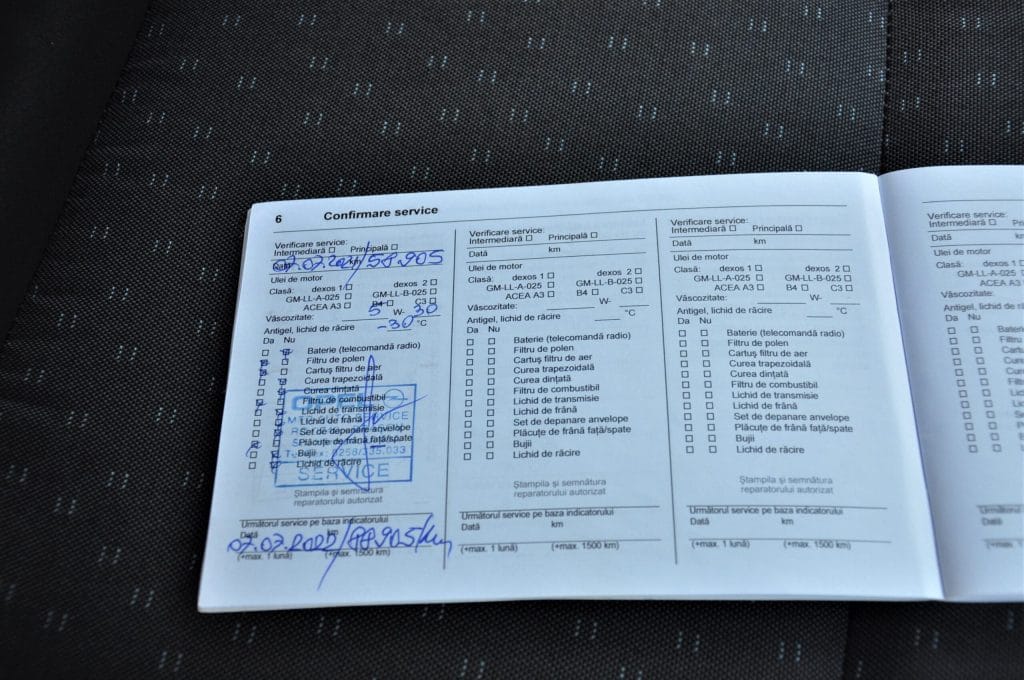 6 Confirmare service
Verificare service:
Intermediară Principală
Dată km
07.07.2021/58.905
Ulei de motor
Clasă: dexos 1 dexos 2
GM-LL-A-025 GM-LL-B-025
ACEA A3 B4 C3
Vâscozitate: 5 W- 30
Antigel, lichid de răcire -30 °C
Da Nu
Baterie (telecomandă radio)
Filtru de polen
Cartuş filtru de aer
Curea trapezoidală
Curea dinţată
Filtru de combustibil
Lichid de transmisie
Lichid de frână
Set de depanare anvelope
Plăcuţe de frână faţă/spate
Bujii
Lichid de răcire
0258/335.033
SERVICE
Ştampila şi semnătura
reparatorului autorizat
Următorul service pe baza indicatorului
Dată km
07.07.2022/88.905/km
(+max. 1 lună) (+max. 1500 km)
Verificare service:
Intermediară Principală
Dată km
Ulei de motor
Clasă: dexos 1 dexos 2
GM-LL-A-025 GM-LL-B-025
ACEA A3 B4 C3
Vâscozitate: W-
Antigel, lichid de răcire °C
Da Nu
Baterie (telecomandă radio)
Filtru de polen
Cartuş filtru de aer
Curea trapezoidală
Curea dinţată
Filtru de combustibil
Lichid de transmisie
Lichid de frână
Set de depanare anvelope
Plăcuţe de frână faţă/spate
Bujii
Lichid de răcire
Ştampila şi semnătura
reparatorului autorizat
Următorul service pe baza indicatorului
Dată km
(+max. 1 lună) (+max. 1500 km)
Verificare service:
Intermediară Principală
Dată km
Ulei de motor
Clasă: dexos 1 dexos 2
GM-LL-A-025 GM-LL-B-025
ACEA A3 B4 C3
Vâscozitate: W-
Antigel, lichid de răcire °C
Da Nu
Baterie (telecomandă radio)
Filtru de polen
Cartuş filtru de aer
Curea trapezoidală
Curea dinţată
Filtru de combustibil
Lichid de transmisie
Lichid de frână
Set de depanare anvelope
Plăcuţe de frână faţă/spate
Bujii
Lichid de răcire
Ştampila şi semnătura
reparatorului autorizat
Următorul service pe baza indicatorului
Dată km
(+max. 1 lună) (+max. 1500 km)
Verificare service:
Intermediară Principală
Dată km
Ulei de motor
Clasă: dexos 1
GM-LL-A-025
ACEA A3
Vâscozitate:
Antigel, lichid de
Da Nu